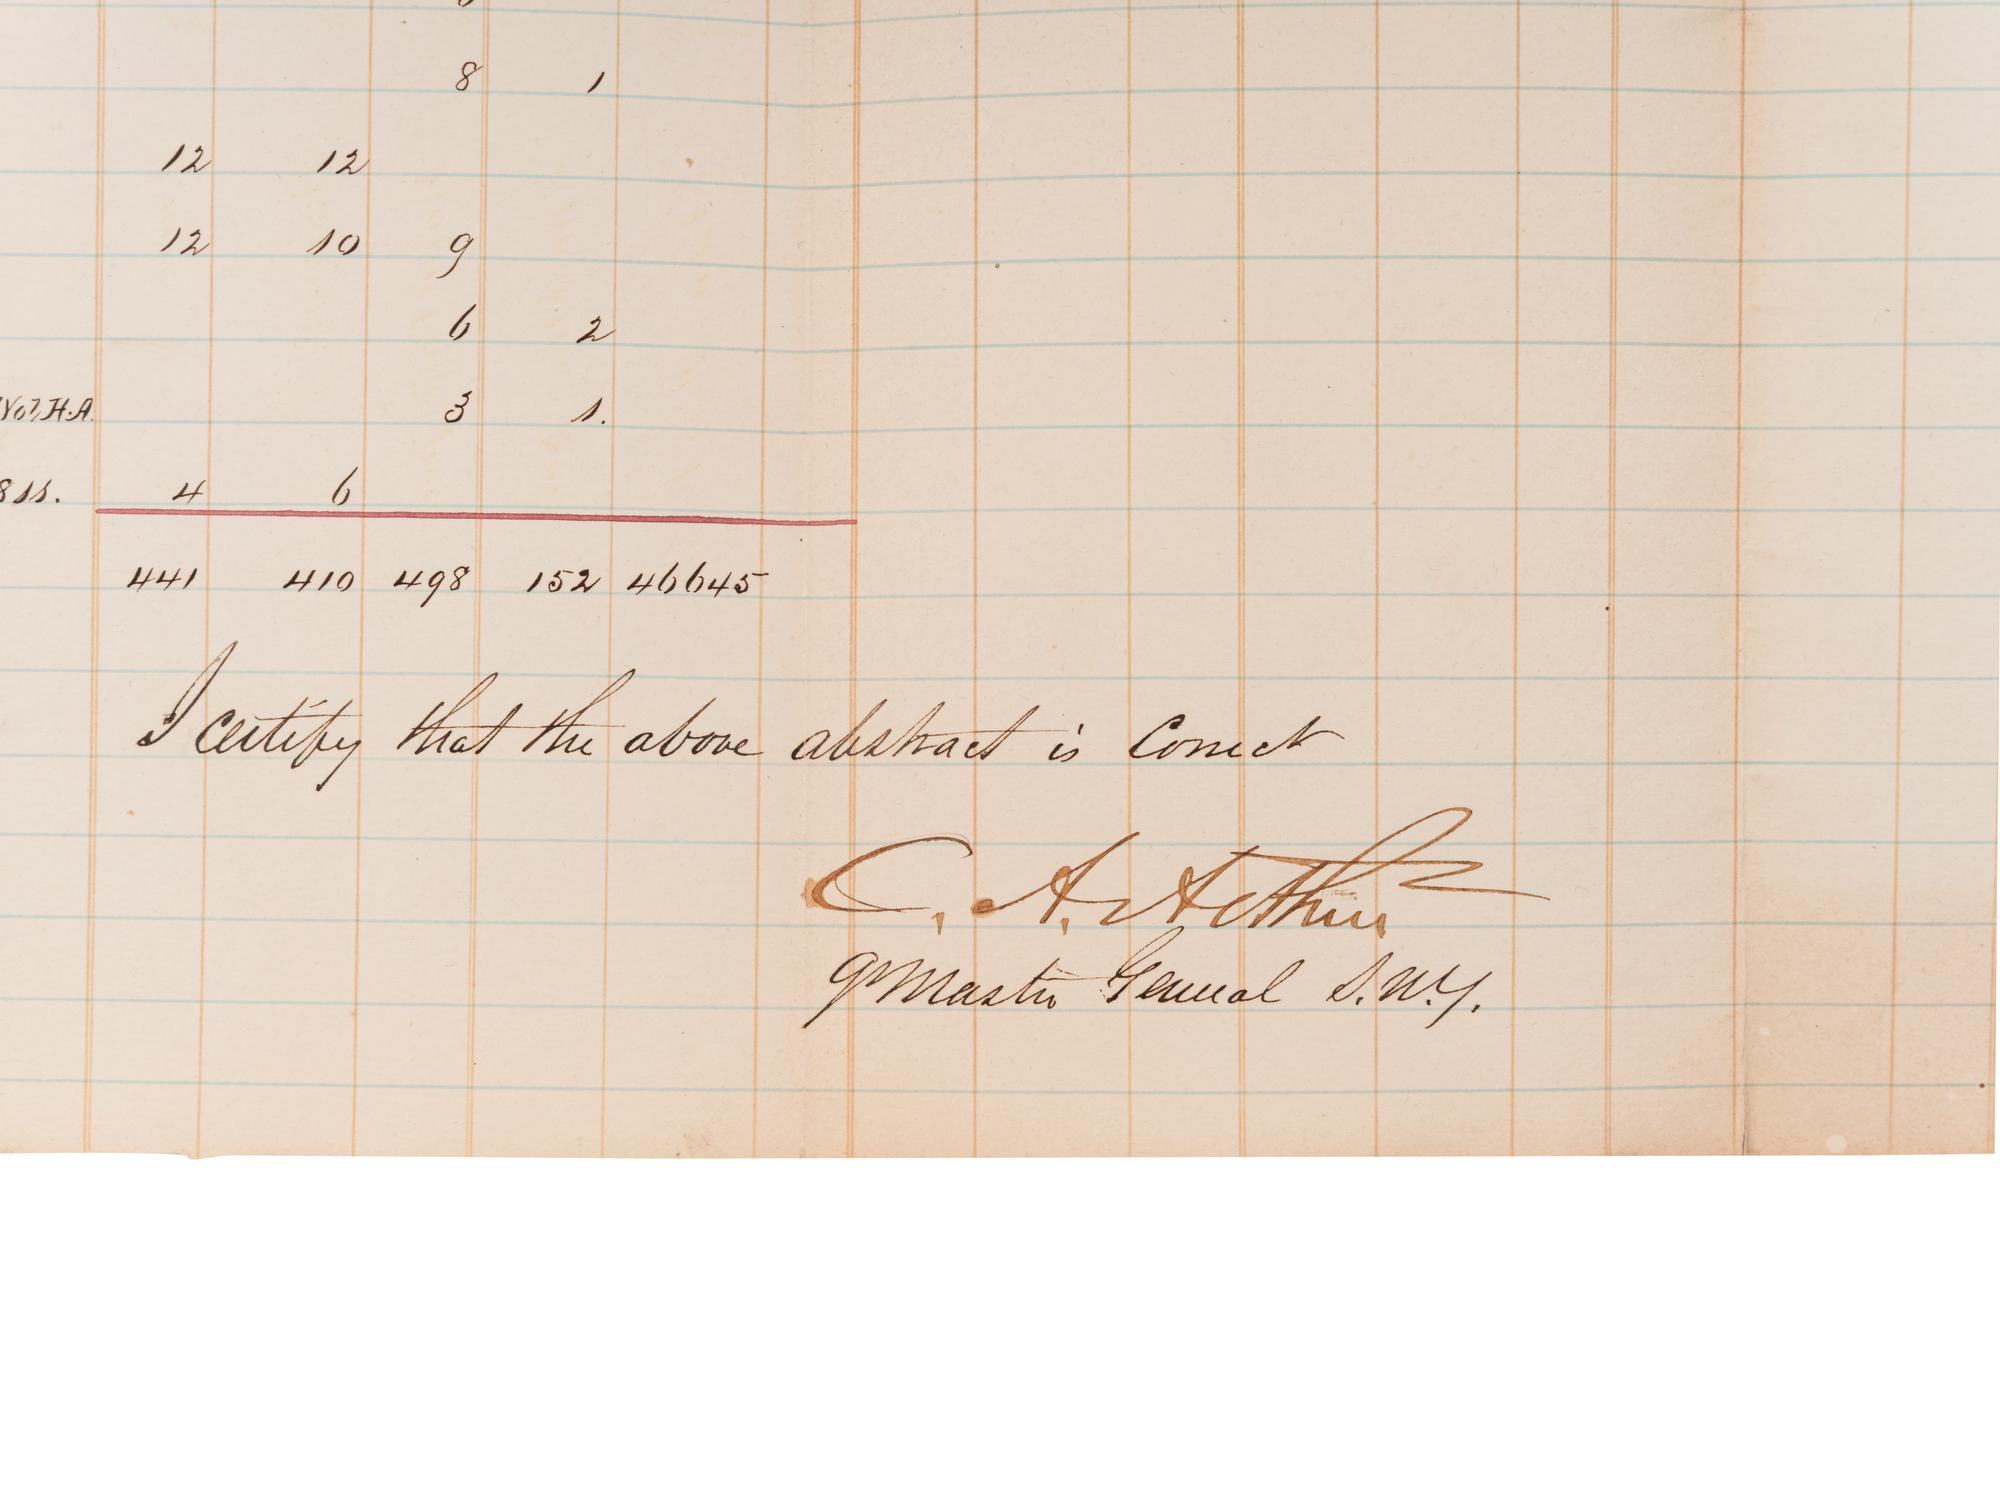 8 1
12 12
12 10 9
6 2
H.A. 3 1.
4 6
441 410 498 152 46645
I certify that the above abstract is correct
C. A. Arthur
Qr Master General S.N.Y.